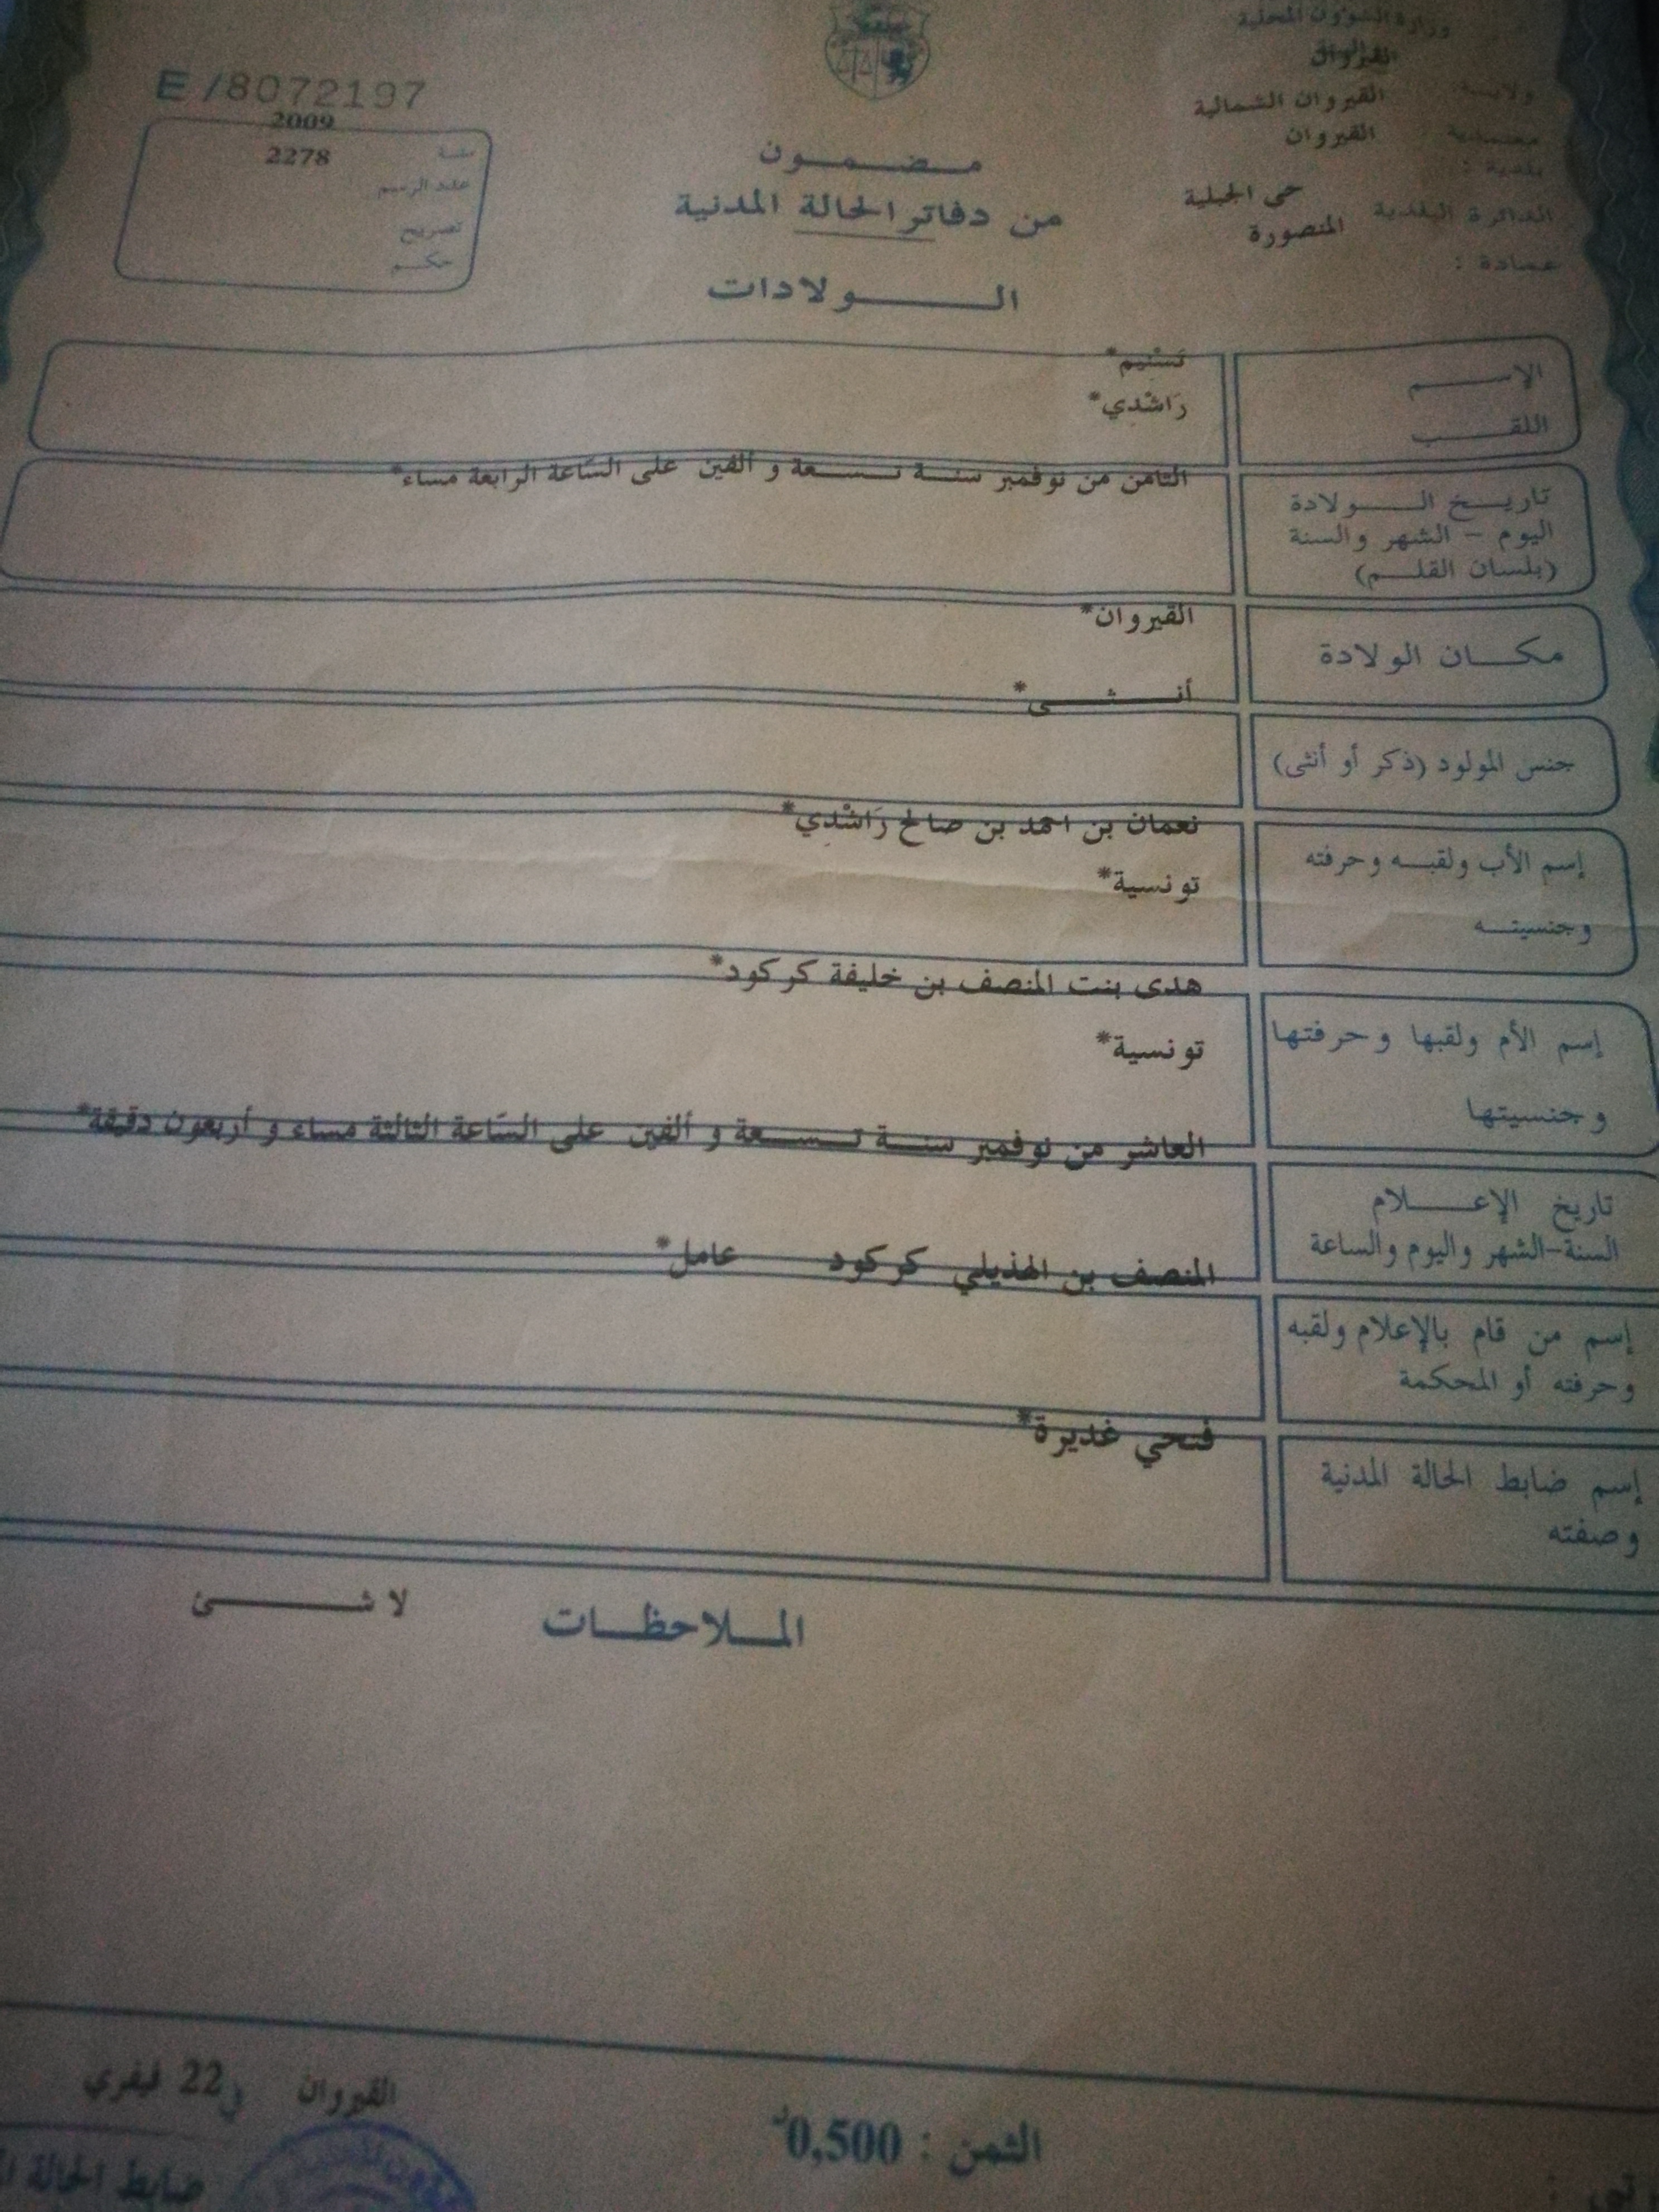 وزارة الشؤون المحلية
القيروان
ولاية
القيروان الشمالية
معتمدية
القيروان
بلدية :
حي الجبلية
الدائرة البلدية
المنصورة
عمادة :
E /8072197
2009
سنة
2278
عدد الرسم
تصريح
حكم
مضمون
من دفاتر الحالة المدنية
الولادات
الإسم
تسنيم*
اللقب
رَاشْدي*
تاريخ الولادة
اليوم - الشهر والسنة
(بلسان القلم)
الثامن من نوفمبر سنة تسعة و ألفين على السّاعة الرابعة مساء*
مكان الولادة
القيروان*
جنس المولود (ذكر أو أنثى)
أنثى*
إسم الأب ولقبه وحرفته
وجنسيته
نعمان بن احمد بن صالح رَاشْدِي*
تونسية*
إسم الأم ولقبها وحرفتها
وجنسيتها
هدى بنت المنصف بن خليفة كركود*
تونسية*
تاريخ الإعلام
السنة-الشهر واليوم والساعة
العاشر من نوفمبر سنة تسعة و ألفين على السّاعة الثالثة مساء و أربعون دقيقة*
إسم من قام بالإعلام ولقبه
وحرفته أو المحكمة
المنصف بن الهذيلي كركود عامل*
إسم ضابط الحالة المدنية
وصفته
فتحي غديرة*
الملاحظات لا شئ
القيروان في 22 فيفري
ضابط الحالة
الثمن : 0,500د